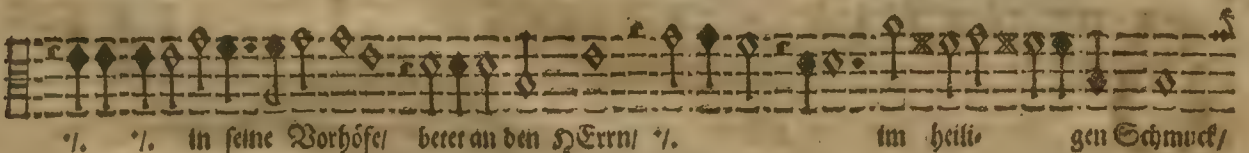 ·/. ·/. in seine Vorhöfe/ betet an den HErrn/ ·/. im heili- gen Schmuck/